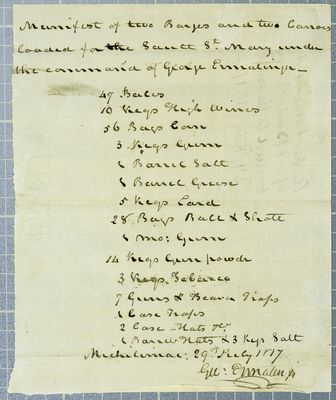 Manifest of two Barges and two Canoes
loaded for the Sault St. Mary under
the command of George Ermatinger
47 Bales
10 Kegs High Wines
56 Bags Corn
3 Kegs Gum
1 Barrel Salt
1 Barrel Grease
5 Kegs Lard
28 Bags Ball & Shott
1 Gum
14 Kegs Gun powdr
3 Kegs Tobacco
7 Guns & Beaver Traps
1 Case Traps
2 Case Hats &c.
1 Barrel & 3 Kegs Salt
29th July 1817
Geo: Ermatinger